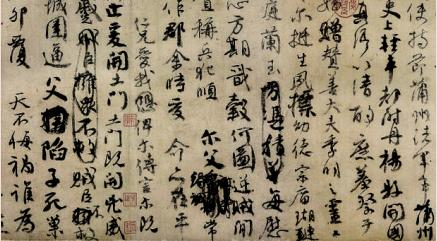 使持節蒲州諸軍事蒲州
史上輕車都尉丹楊縣開國
真卿以清酌庶羞祭于
姪贈贊善大夫季明之靈曰
爾挺生夙標幼德宗廟瑚璉
庭蘭玉每慰
心方期戩穀何圖逆賊間
稱兵犯順爾父竭誠常
作郡余時受命亦在平
仁兄愛我俾爾傳言爾既
止爰開土門土門既開凶威
蹙賊臣擁眾不救賊臣不救
城圍逼父陷子死巢
卵覆天不悔禍誰為